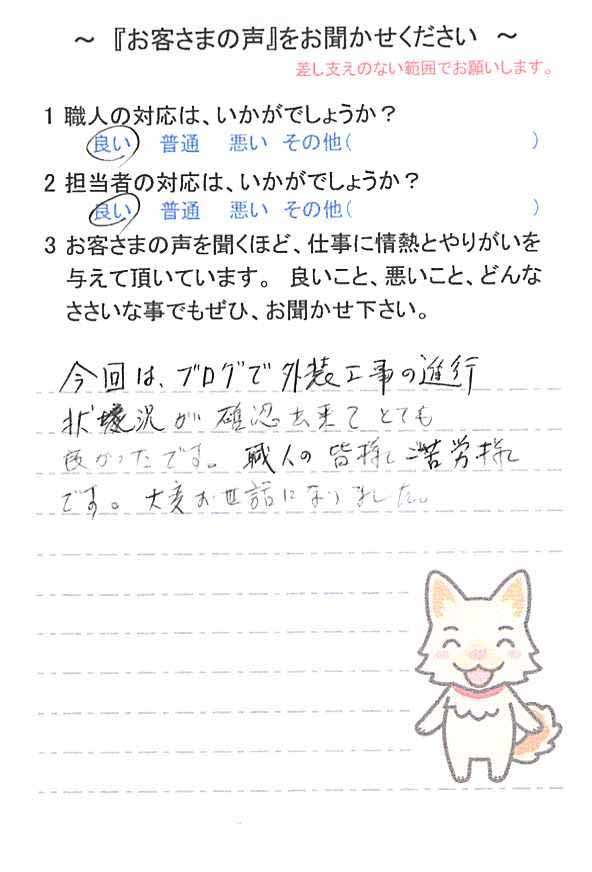 ～ 『お客さまの声』をお聞かせください ～
差し支えのない範囲でお願いします。
1 職人の対応は、いかがでしょうか？
良い 普通 悪い その他( )
2 担当者の対応は、いかがでしょうか？
良い 普通 悪い その他( )
3 お客さまの声を聞くほど、仕事に情熱とやりがいを
与えて頂いています。 良いこと、悪いこと、どんな
ささいな事でもぜひ、お聞かせ下さい。
今回は、ブログで外装工事の進行
状況が確認出来てとても
良かったです。職人の皆様ご苦労様
です。大変お世話になりました。